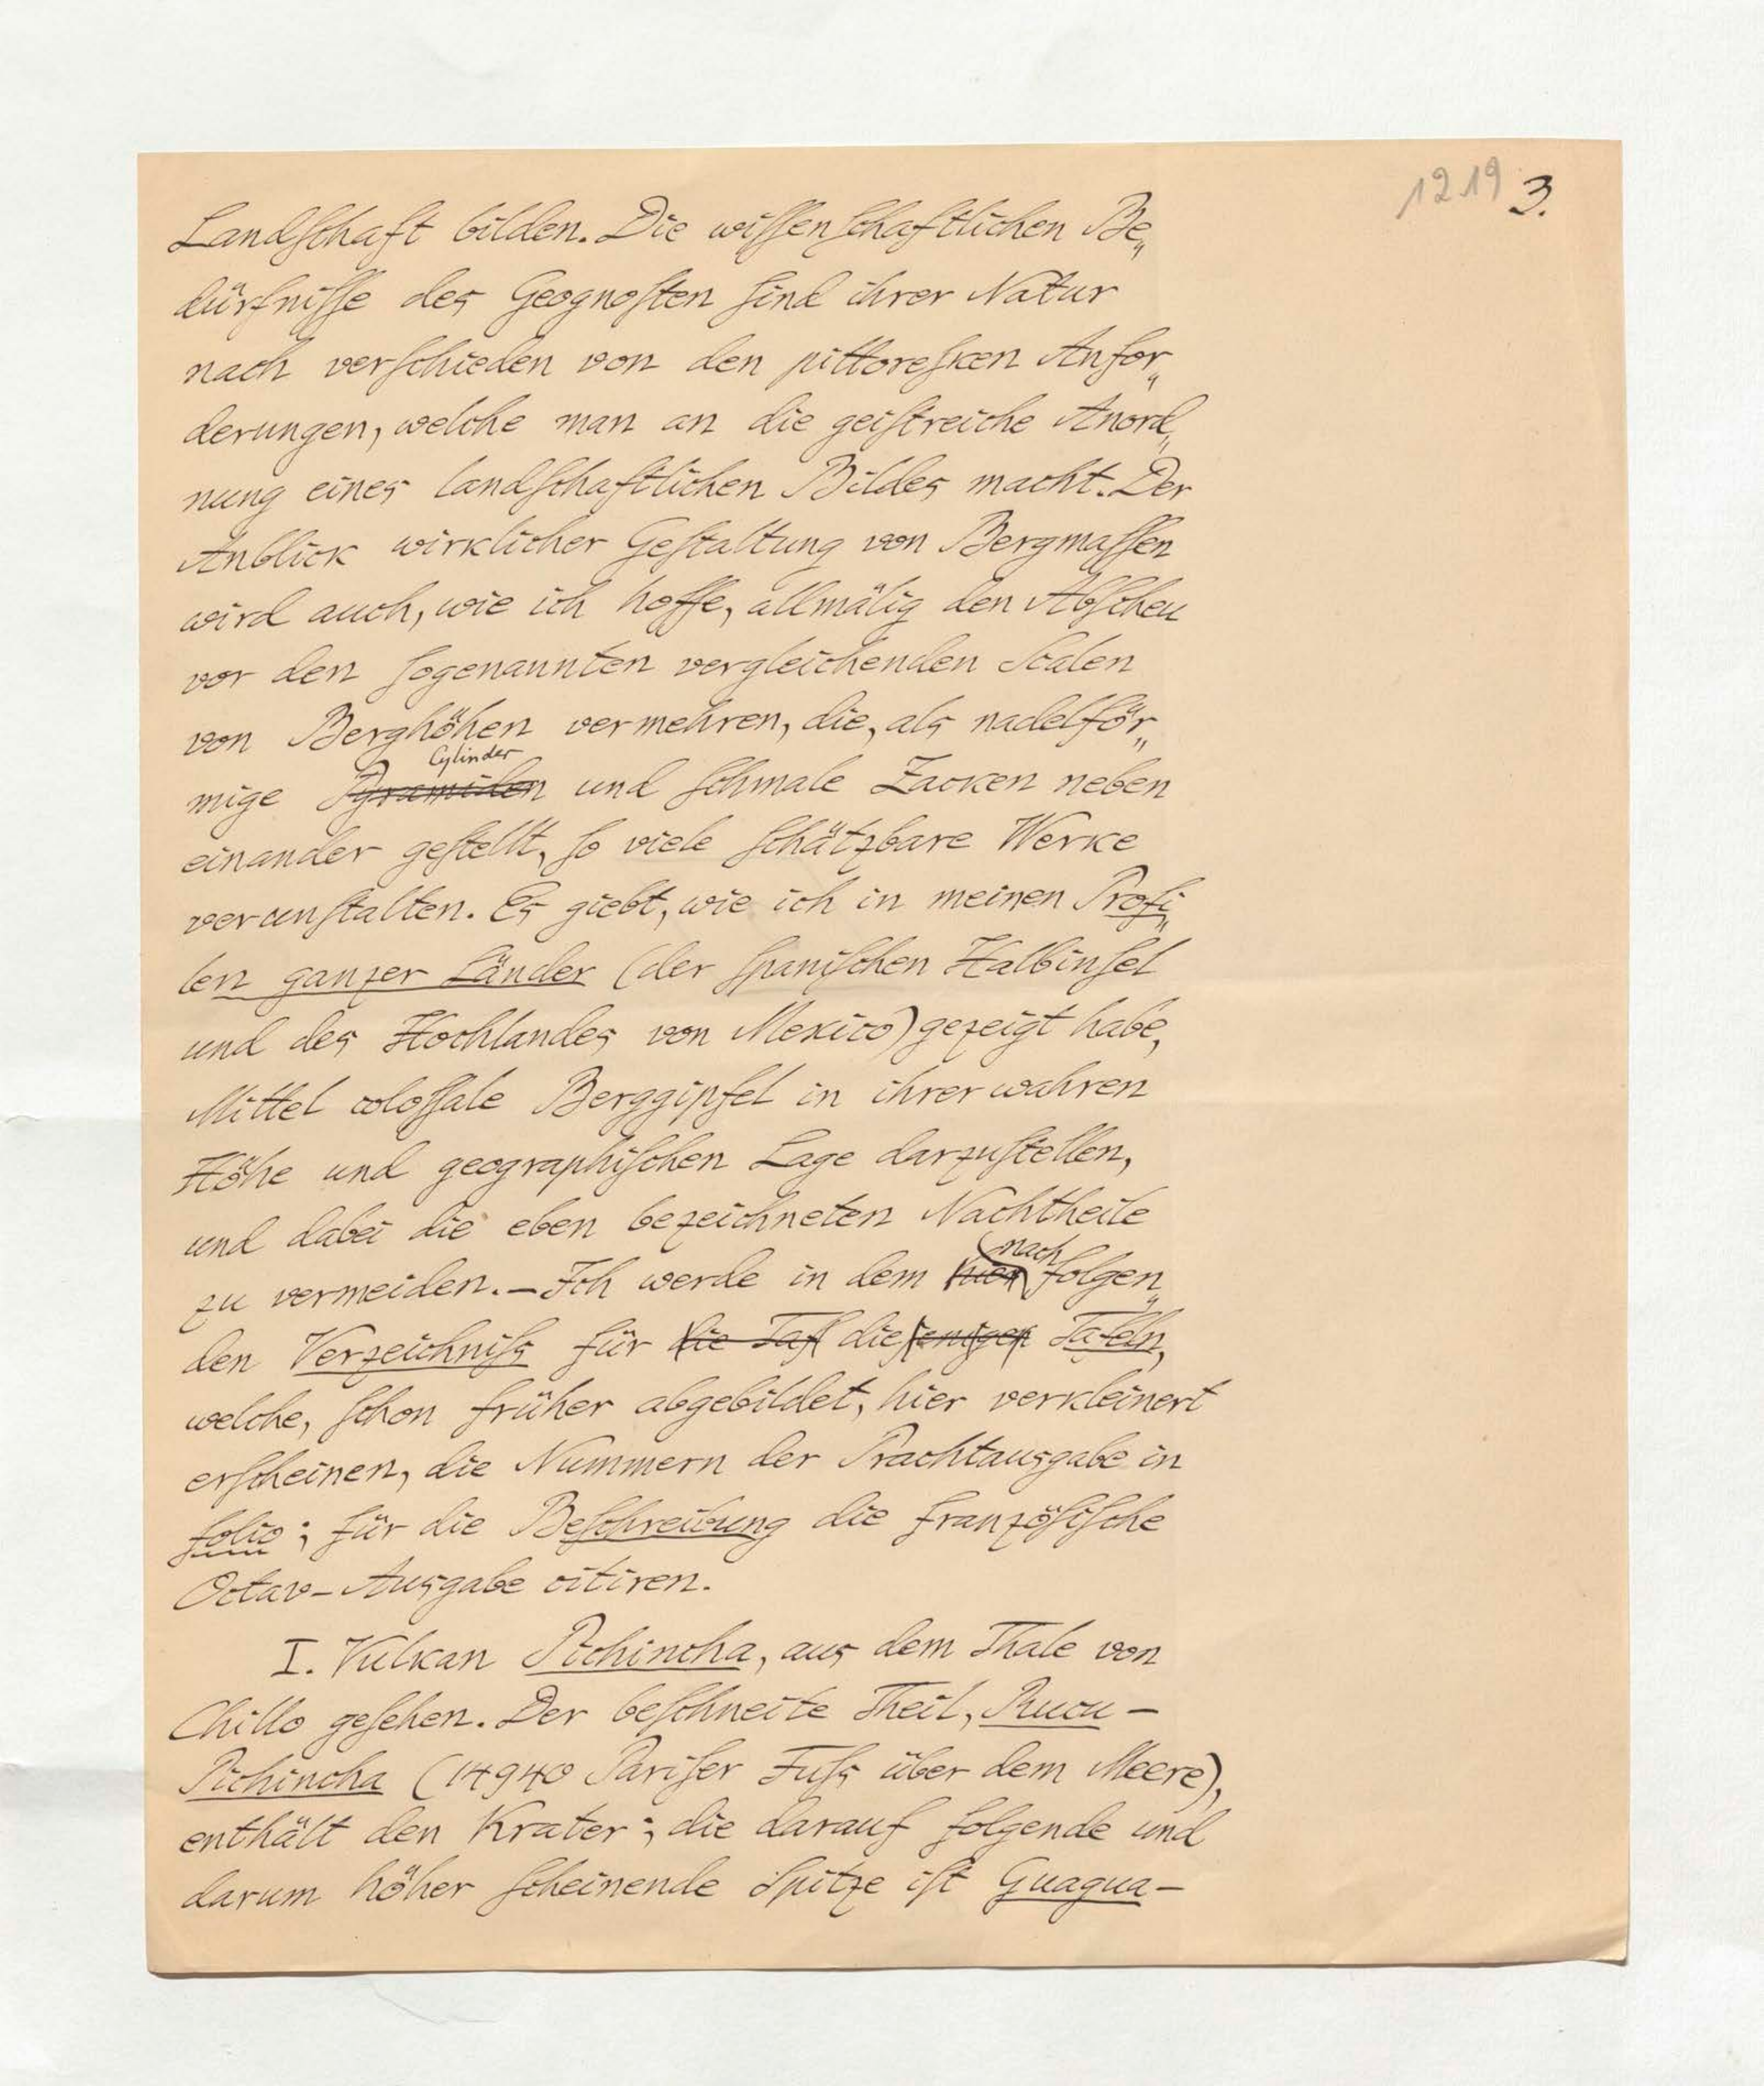 1219 3.
Landſchaft bilden. Die wiſſenſchaftlichen Be„
dürfniſſe des Geognoſten ſind ihrer Natur
nach verſchieden von den pittoreſken Anfor„
derungen, welche man an die geiſtreiche Anord„
nung eines landſchaftlichen Bildes macht. Der
Anblick wirklicher Geſtaltung von Bergmaſſen
wird auch, wie ich hoffe, allmälig den Abſcheu
vor den ſogenannten vergleichenden Scalen
von Berghöhen vermehren, die, als nadelför„
Cylinder
mige Pyramiden und ſchmale Zacken neben
einander geſtellt, ſo viele ſchätzbare Werke
verunſtalten. Es giebt, wie ich in meinen Profi„
len ganzer Länder (der ſpaniſchen Halbinſel
und des Hochlandes von Mexico) gezeigt habe,
Mittel coloſſale Berggipfel in ihrer wahren
Höhe und geographiſchen Lage darzuſtellen,
und dabei die eben bezeichneten Nachtheile
nach
zu vermeiden. – Ich werde in dem hier folgen„
den Verzeichniſs für die Taf diejenigen Tafeln,
welche, ſchon früher abgebildet, hier verkleinert
erſcheinen, die Nummern der Prachtausgabe in
folio; für die Beſchreibung die franzöſiſche
Octav-Ausgabe citiren.
I. Vulkan Pichincha, aus dem Thale von
Chillo geſehen. Der beſchneite Theil, Rucu-
Pichincha (14940 Pariſer Fuſs über dem Meere),
enthält den Krater; die darauf folgende und
darum höher ſcheinende Spitze iſt Guagua-